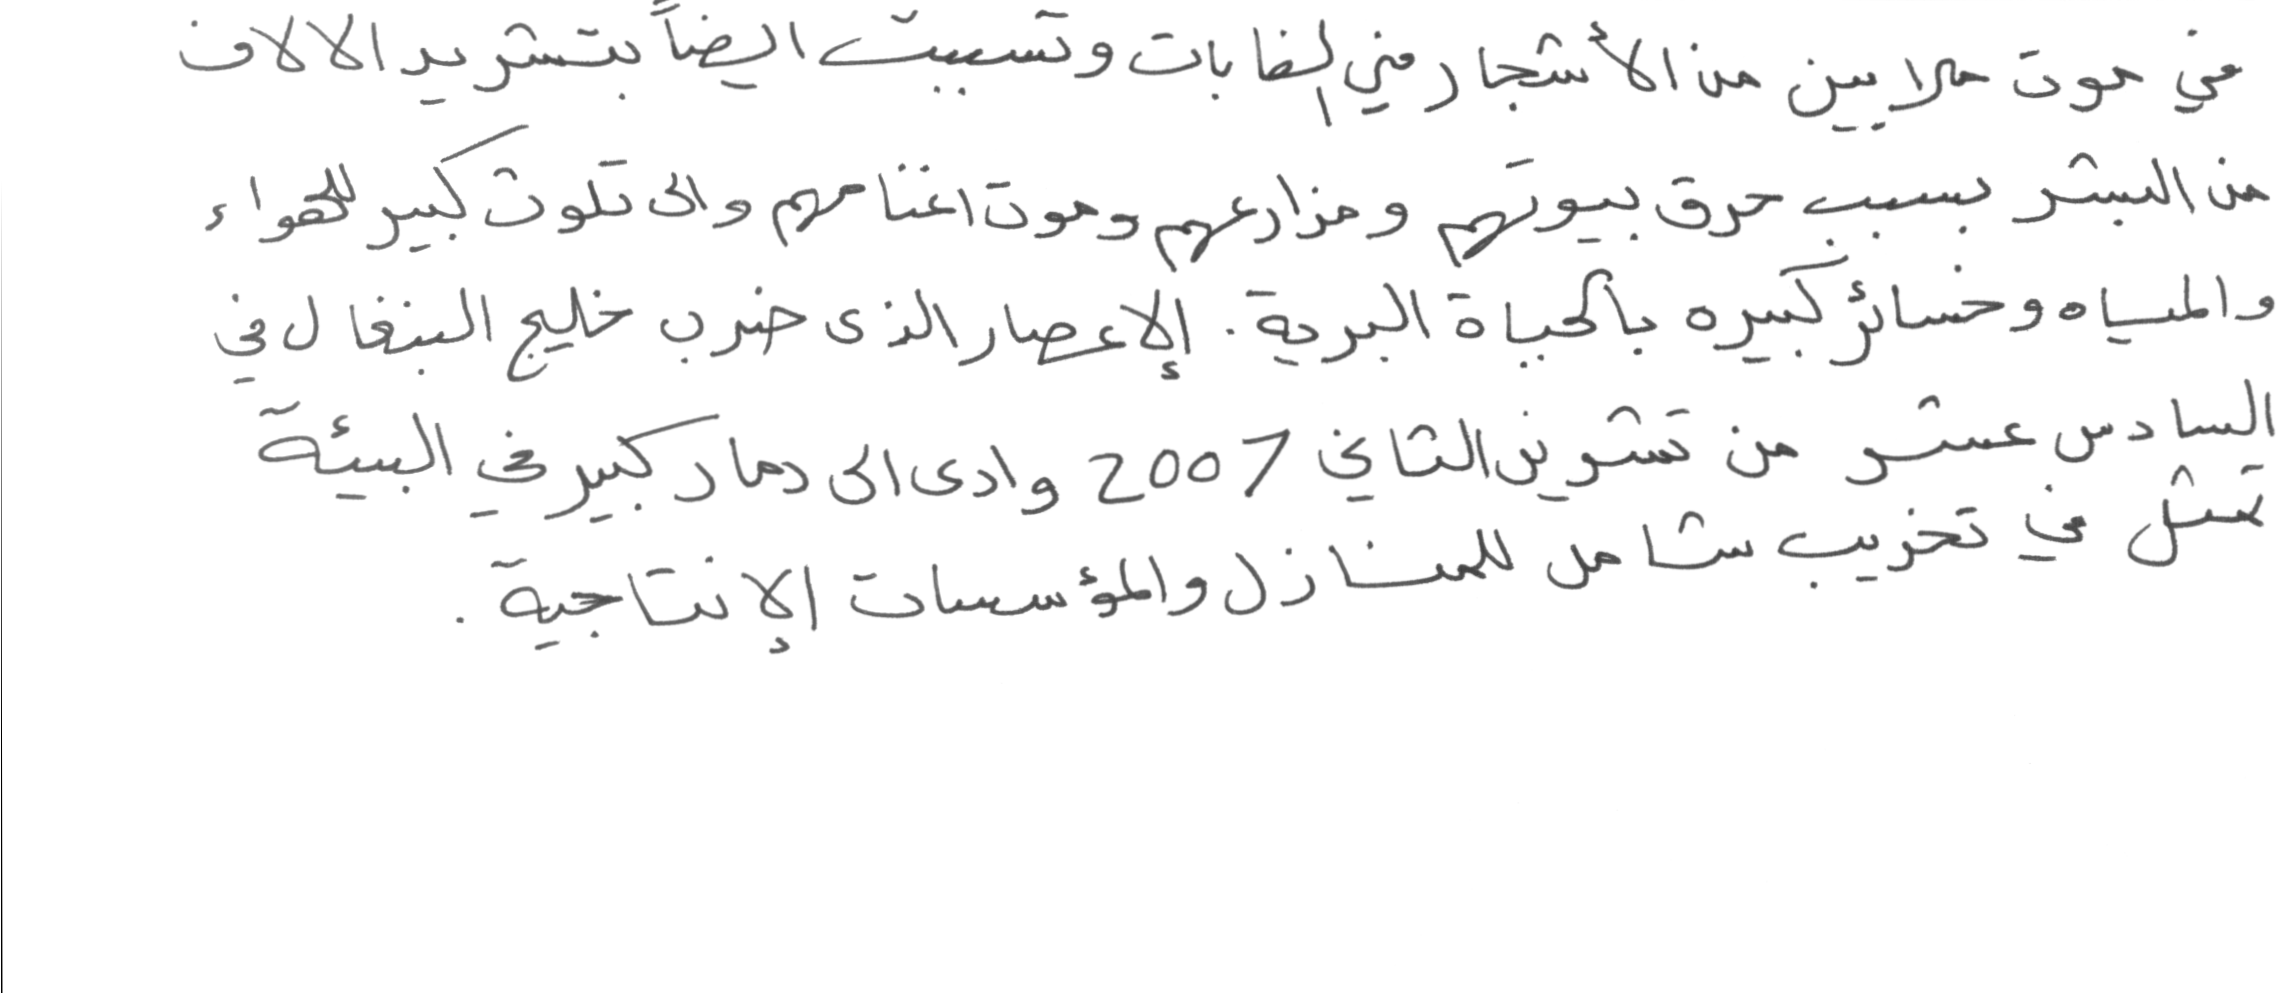 في موت ملايين من الأشجار في الغابات وتسببت ايضاً بتشريد الالاف
من البشر بسبب حرق بيوتهم ومزارعهم وموت اغنامهم والى تلوث كبير للهواء
والمياه وخسائر كبيره بالحياة البرية. الإعصار الذى ضرب خليج البنغال في
السادس عشر من تشرين الثاني 2007 وادى الى دمار كبير في البيئة
تمثل في تخريب شامل للمنازل والمؤسسات الإنتاجية.